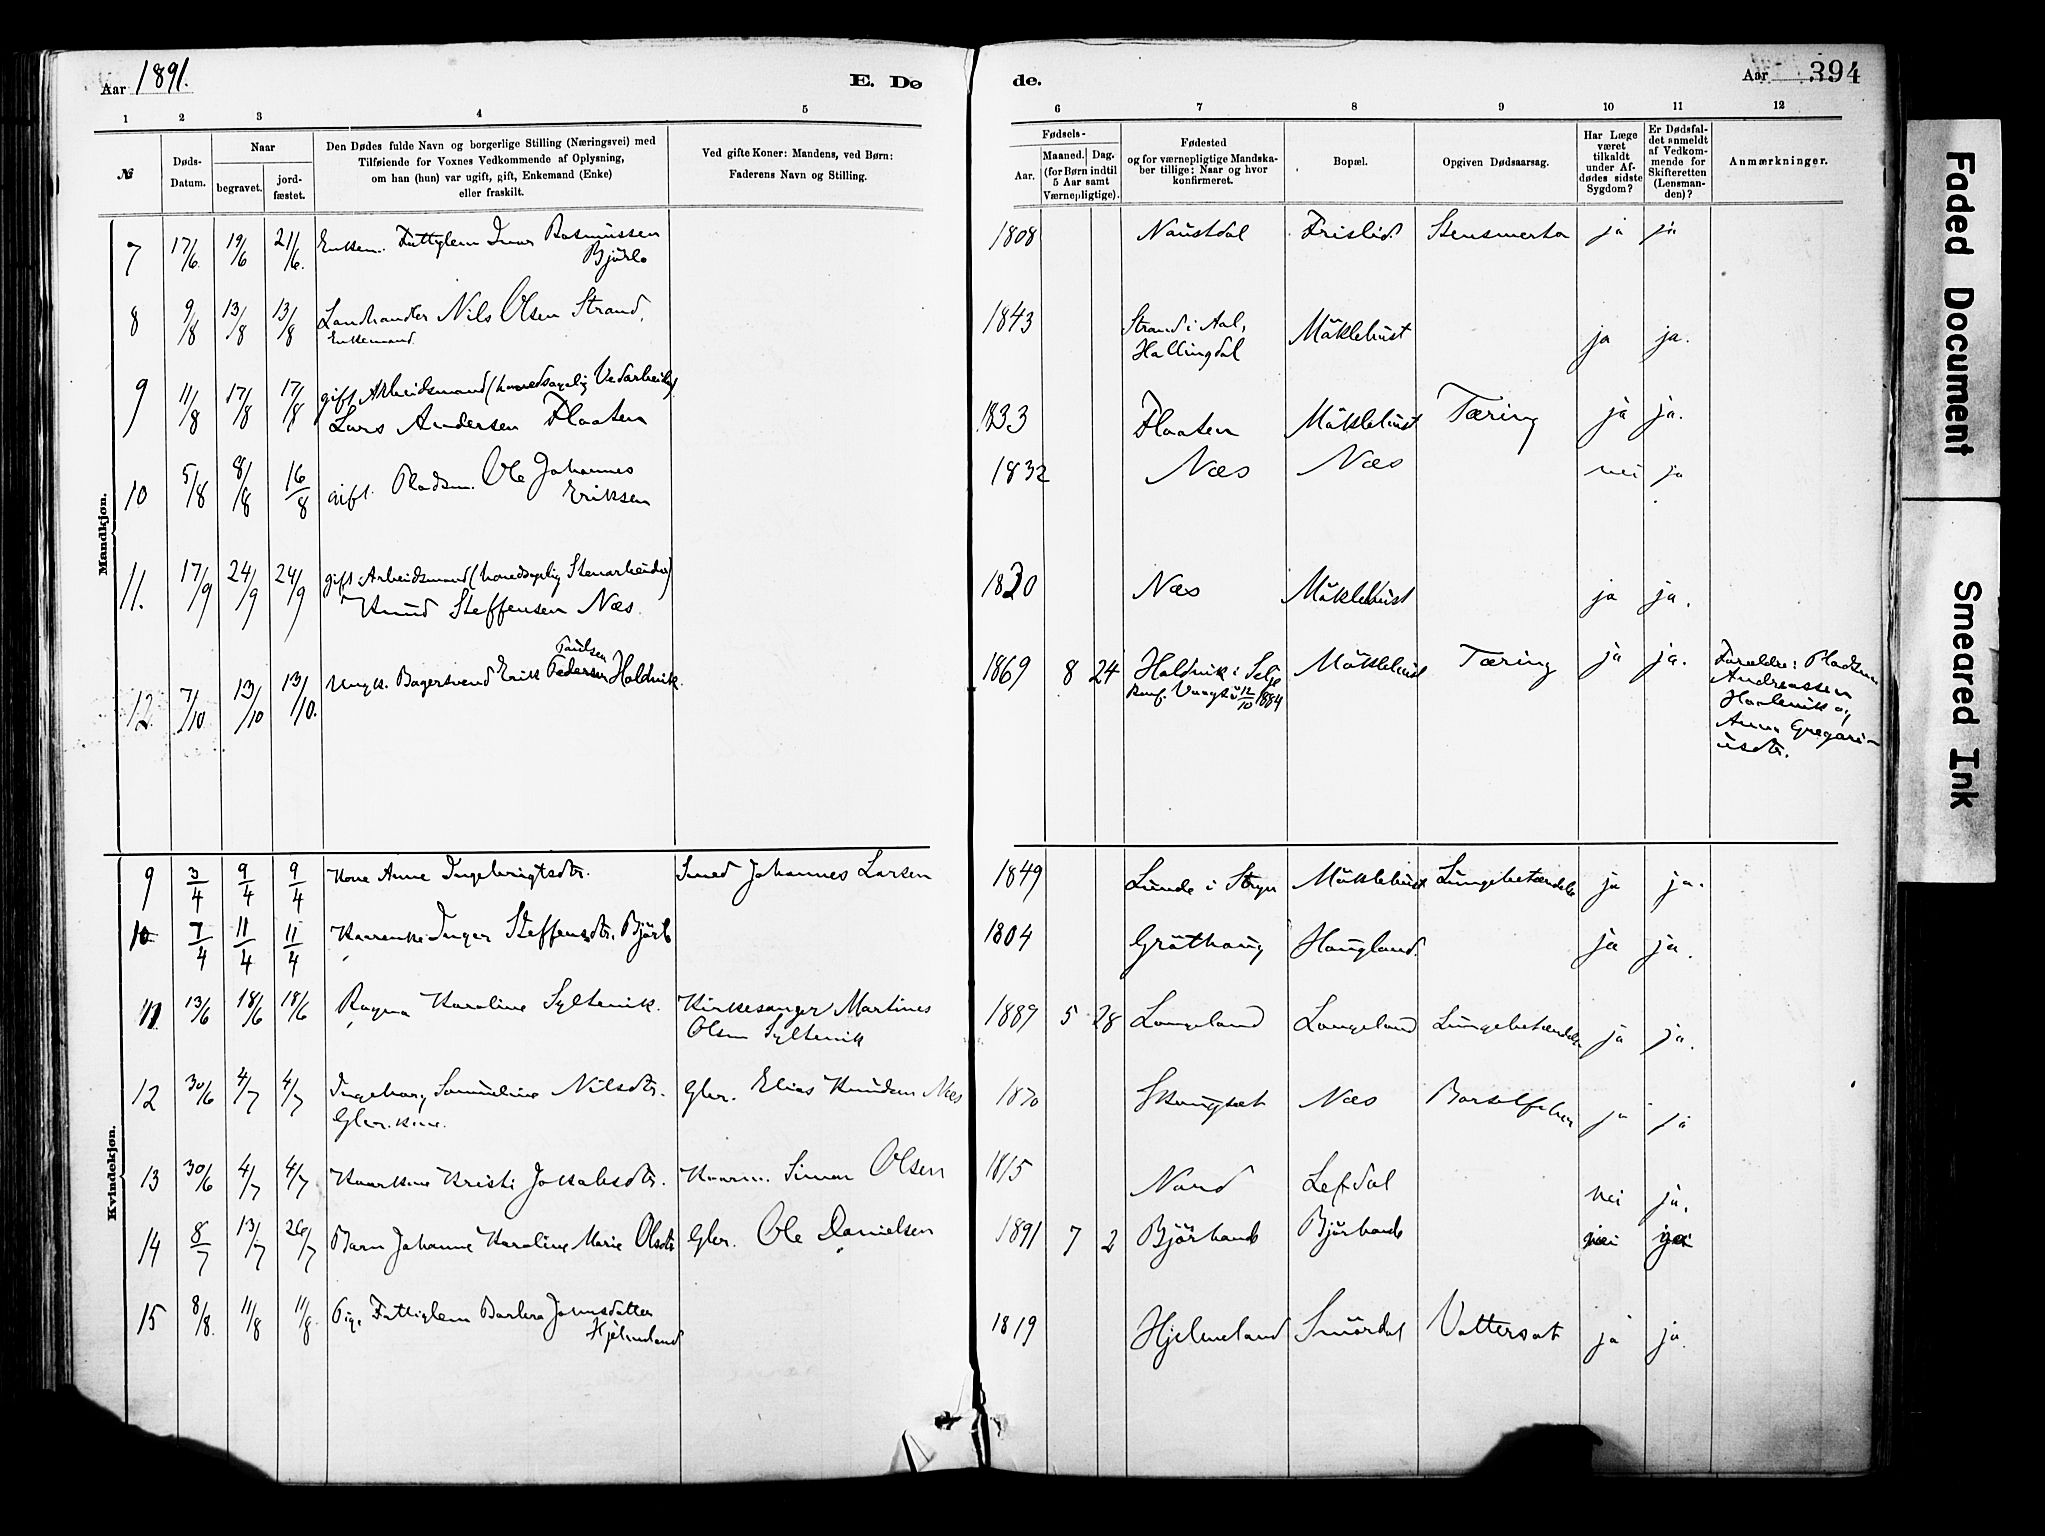 Aar 1891.
E. Dø
de.
Aar 394
1 2 3 4 5 6 7 8 9 10 11 12
№
Døds-
Datum.
Naar
begravet.
jord-
fæstet.
Den Dødes fulde Navn og borgerlige Stilling (Næringsvei) med
Tilføiende for Voxnes Vedkommende af Oplysning,
om han (hun) var ugift, gift, Enkemand (Enke)
eller fraskilt.
Ved gifte Koner: Mandens, ved Børn:
Faderens Navn og Stilling.
Fødsels-
Aar.
Maaned. Dag.
(for Børn indtil
5 Aar samt
Værnepligtige).
Fødested
og for værnepligtige Mandska-
ber tillige: Naar og hvor
konfirmeret.
Bopæl.
Opgiven Dødsaarsag.
Har Læge
været
tilkaldt
under Af-
dødes sidste
Sygdom?
Er Dødsfal-
det anmeldt
af Vedkom-
mende for
Skifteretten
(Lensman-
den)?
Anmærkninger.
Mandkjøn.
7 17/6. 19/6 21/6. Enkem. Fattiglem Ivar Rasmussen 1808 Naustdal Frislid. Stensmerta ja ja
Bjørlo
8 9/8 13/8 13/8 Landhandler Nils Olsen Strand, 1843 Strand i Aal, Mäklebust ja ja.
Enkemand. Hallingdal
9 11/8 17/8 17/8 gift Arbeidsmand (hovedsagelig Vedarbeider)
Lars Andersen Flaaten 1833 Flaaten Mäklebust Tæring ja ja.
10 5/8 8/8 16/8 gift. Pladsm. Ole Johannes 1832 Næs Næs nei ja
Eriksen
11. 17/9 24/9 24/9 gift Arbeidsmand (hovedsagelig Stenarbeider)
Knud Steffensen Næs. 1830 Næs Mäklebust ja ja.
Paulsen
12 7/10 13/10 13/10. Ungk. Bagersvend Erik Pedersen Holdvik. 1869 8 24 Holdvik i Selje Mäklebust Tæring ja ja. Forældre: Pladsm
konf. 12/10 1884 Andreassen
Anna Gregori-
usdtr.
Kvindekjøn.
9 3/4 9/4 9/4 Kone Anne Ingebrigtsdtr. Smed Johannes Larsen 1849 Lunde i Stryn Mäklebust Lungebetændelse ja ja.
10 7/4 11/4 11/4 Inger Steffensdtr. Bjørlo 1804 Gröthaug Haugland. ja ja.
11 13/6 18/6 18/6 Ragna Karoline Syltevik. Kirkesanger Martines 1889 5 28 Langeland Langeland Lungebetændelse ja ja.
Olsen Syltevik
12 30/6 4/7 4/7 Ingeborg Samueline Nilsdtr. Gbr. Elias Knudsen Næs 1870 Skaugsæt Næs Barselfeber ja ja
Gbr. kone.
13 30/6 4/7 4/7 Kristi Jakobsdtr. Simon Olsen 1815 Nord Lefdal nei ja.
14 8/7 13/7 26/7 Barn Johanne Karoline Marie Olsdtr Gbr. Ole Danielsen 1891 7 2 Bjørhovde Bjørhovde nei ja
15 8/8. 11/8 11/8. Pige Fattiglem Barbra Jonsdatter 1819 Hjelmeland Smördal Vattersot ja ja.
Hjelmeland
Faded Document
Smeared Ink